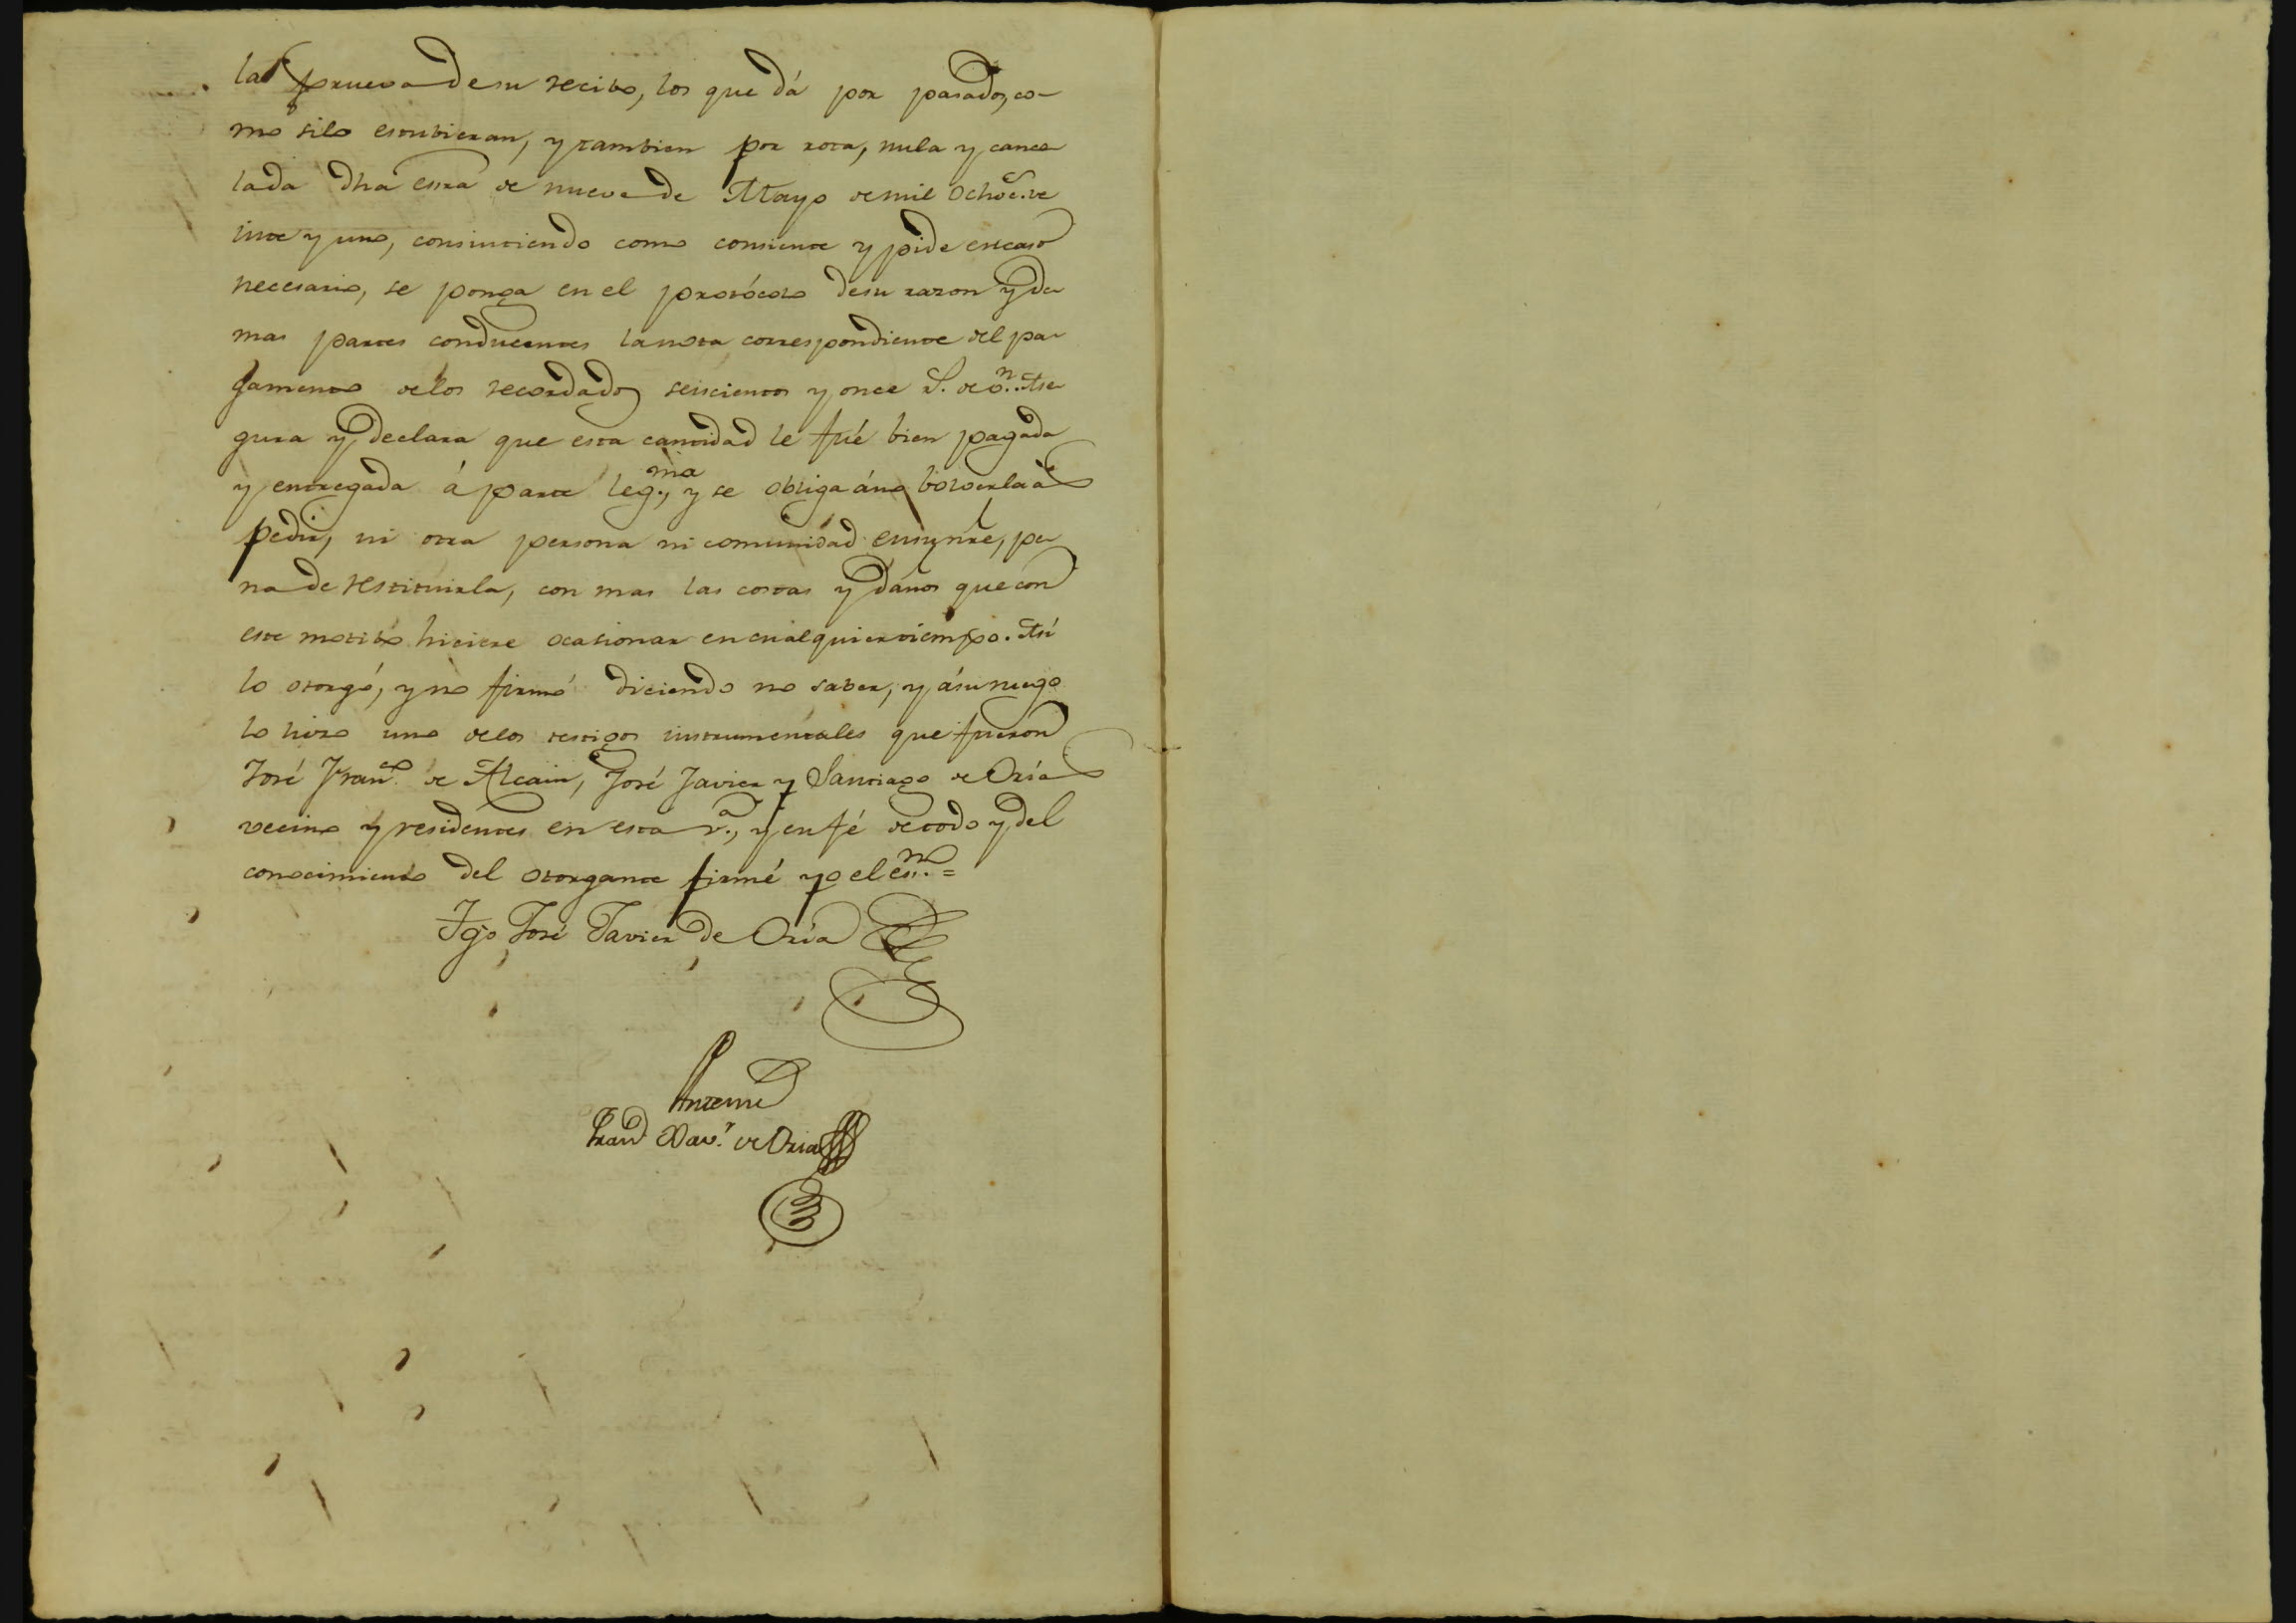 la prueva de su recibo, los que dá por pasados, co-
mo silo estubieran, y tambien por rota, nula y cance
lada dha essra de nueve de Mayo de mil ochoc.s ve
inte y uno, consintiendo como consiente y pide en caso
necesario, se ponga en el protócolo de su razon y de
mas partes conducentes la nota correspondiente del pa
gamento de los recordados seiscientos y once P. de v.n Ase
gura y declara que esta cantidad le fué bien pagada
y entregada á parte leg.ma, y se obliga áno bolverla á
pedir, ni otra persona ni comunidad en su nre, pe
na de restituirla, con mas las costas y daños que con
este motibo hiciere ocasionar en cualquier tiempo. Asi
lo otorgó, y no firmó diciendo no saber, y á su ruego
lo hizo uno de los testigos instrumentales que fueron
José Fran.co de Alcain, José Javier y Santiago de Oria
vecino y residentes en esta v.a, y en fé de todo y del
conocimiento del otorgante firmé yo el es.no =
Tgo José Javier de Oria
Antemi
Fran.co Xav.r de Oria